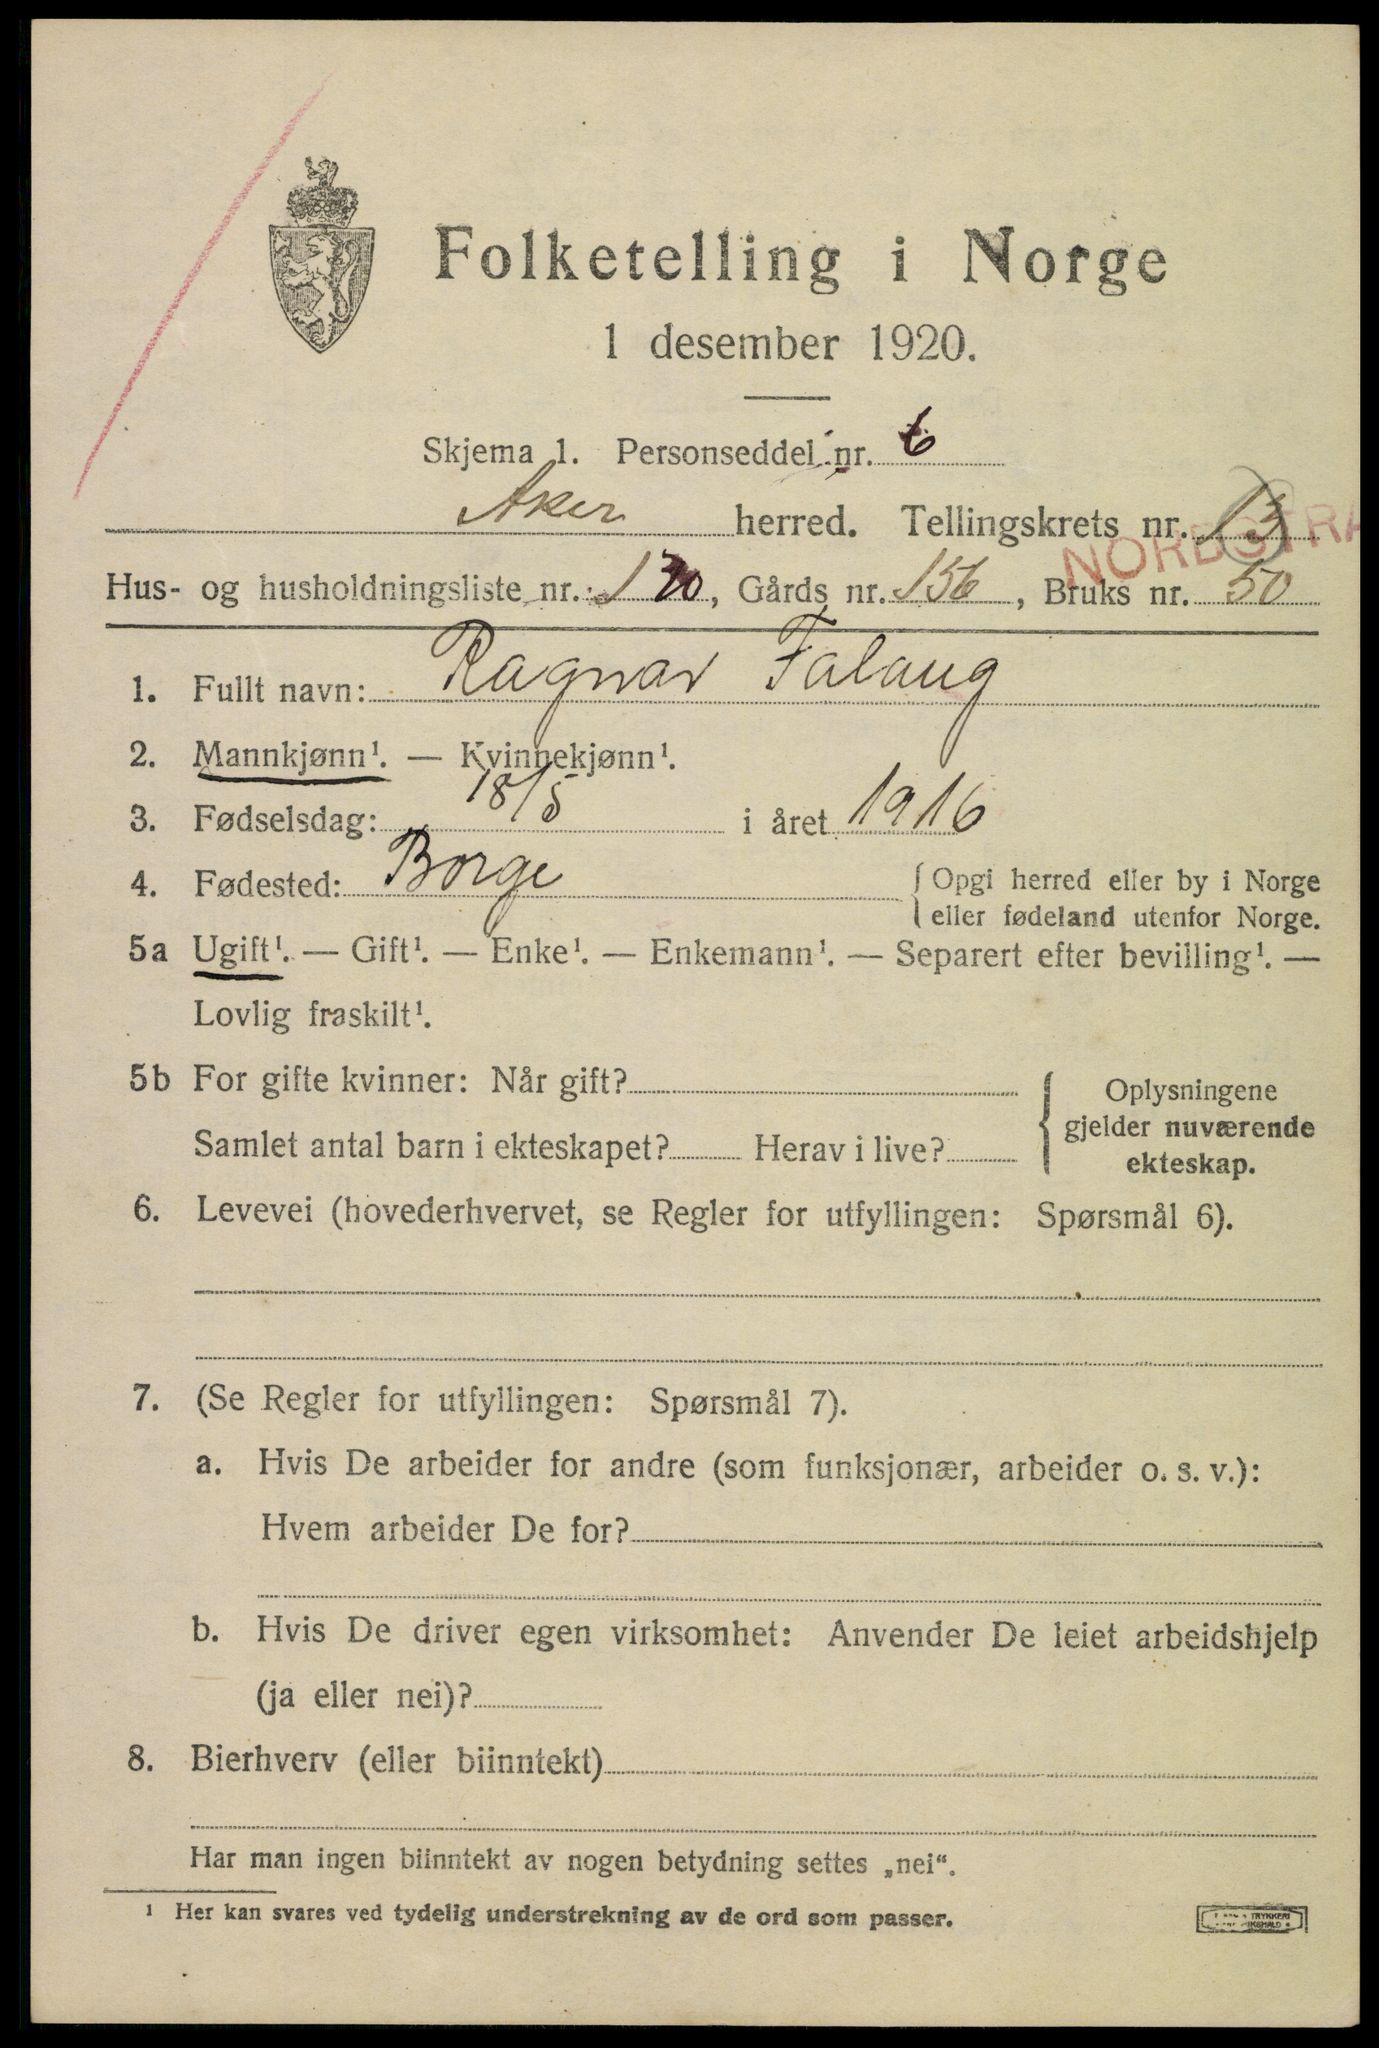 Folketelling i Norge
1 desember 1920.
Skjema 1. Personseddel nr. 6
Aker herred. Tellingskrets nr. 13
NORDSTRA
Hus- og husholdningsliste nr. 130, Gårds nr. 156, Bruks nr. 50
1. Fullt navn: Ragnar Falang
2. Mannkjønn¹. — Kvinnekjønn¹.
3. Fødselsdag: 18/5 i året 1916
4. Fødested: Borge { Opgi herred eller by i Norge
eller fødeland utenfor Norge.
5a Ugift¹. — Gift¹. — Enke¹. — Enkemann¹. — Separert efter bevilling¹. —
Lovlig fraskilt¹.
5b For gifte kvinner: Når gift?
Samlet antal barn i ekteskapet? Herav i live?
Oplysningene
gjelder nuværende
ekteskap.
6. Levevei (hovederhvervet, se Regler for utfyllingen: Spørsmål 6).
7. (Se Regler for utfyllingen: Spørsmål 7).
a. Hvis De arbeider for andre (som funksjonær, arbeider o. s. v.):
Hvem arbeider De for?
b. Hvis De driver egen virksomhet: Anvender De leiet arbeidshjelp
(ja eller nei)?
8. Bierhverv (eller biinntekt)
Har man ingen biinntekt av nogen betydning settes „nei“.
¹ Her kan svares ved tydelig understrekning av de ord som passer.
TRYKKERI